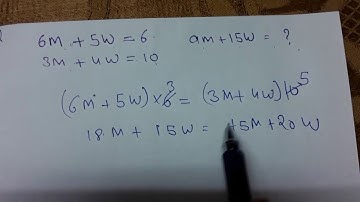 6M + 5W = 6. 9M + 15W = ?
3M + 4W = 10
(6M + 5W) × 6 3 = (3M + 4W) 10 5
18M + 15W = 15M + 20W